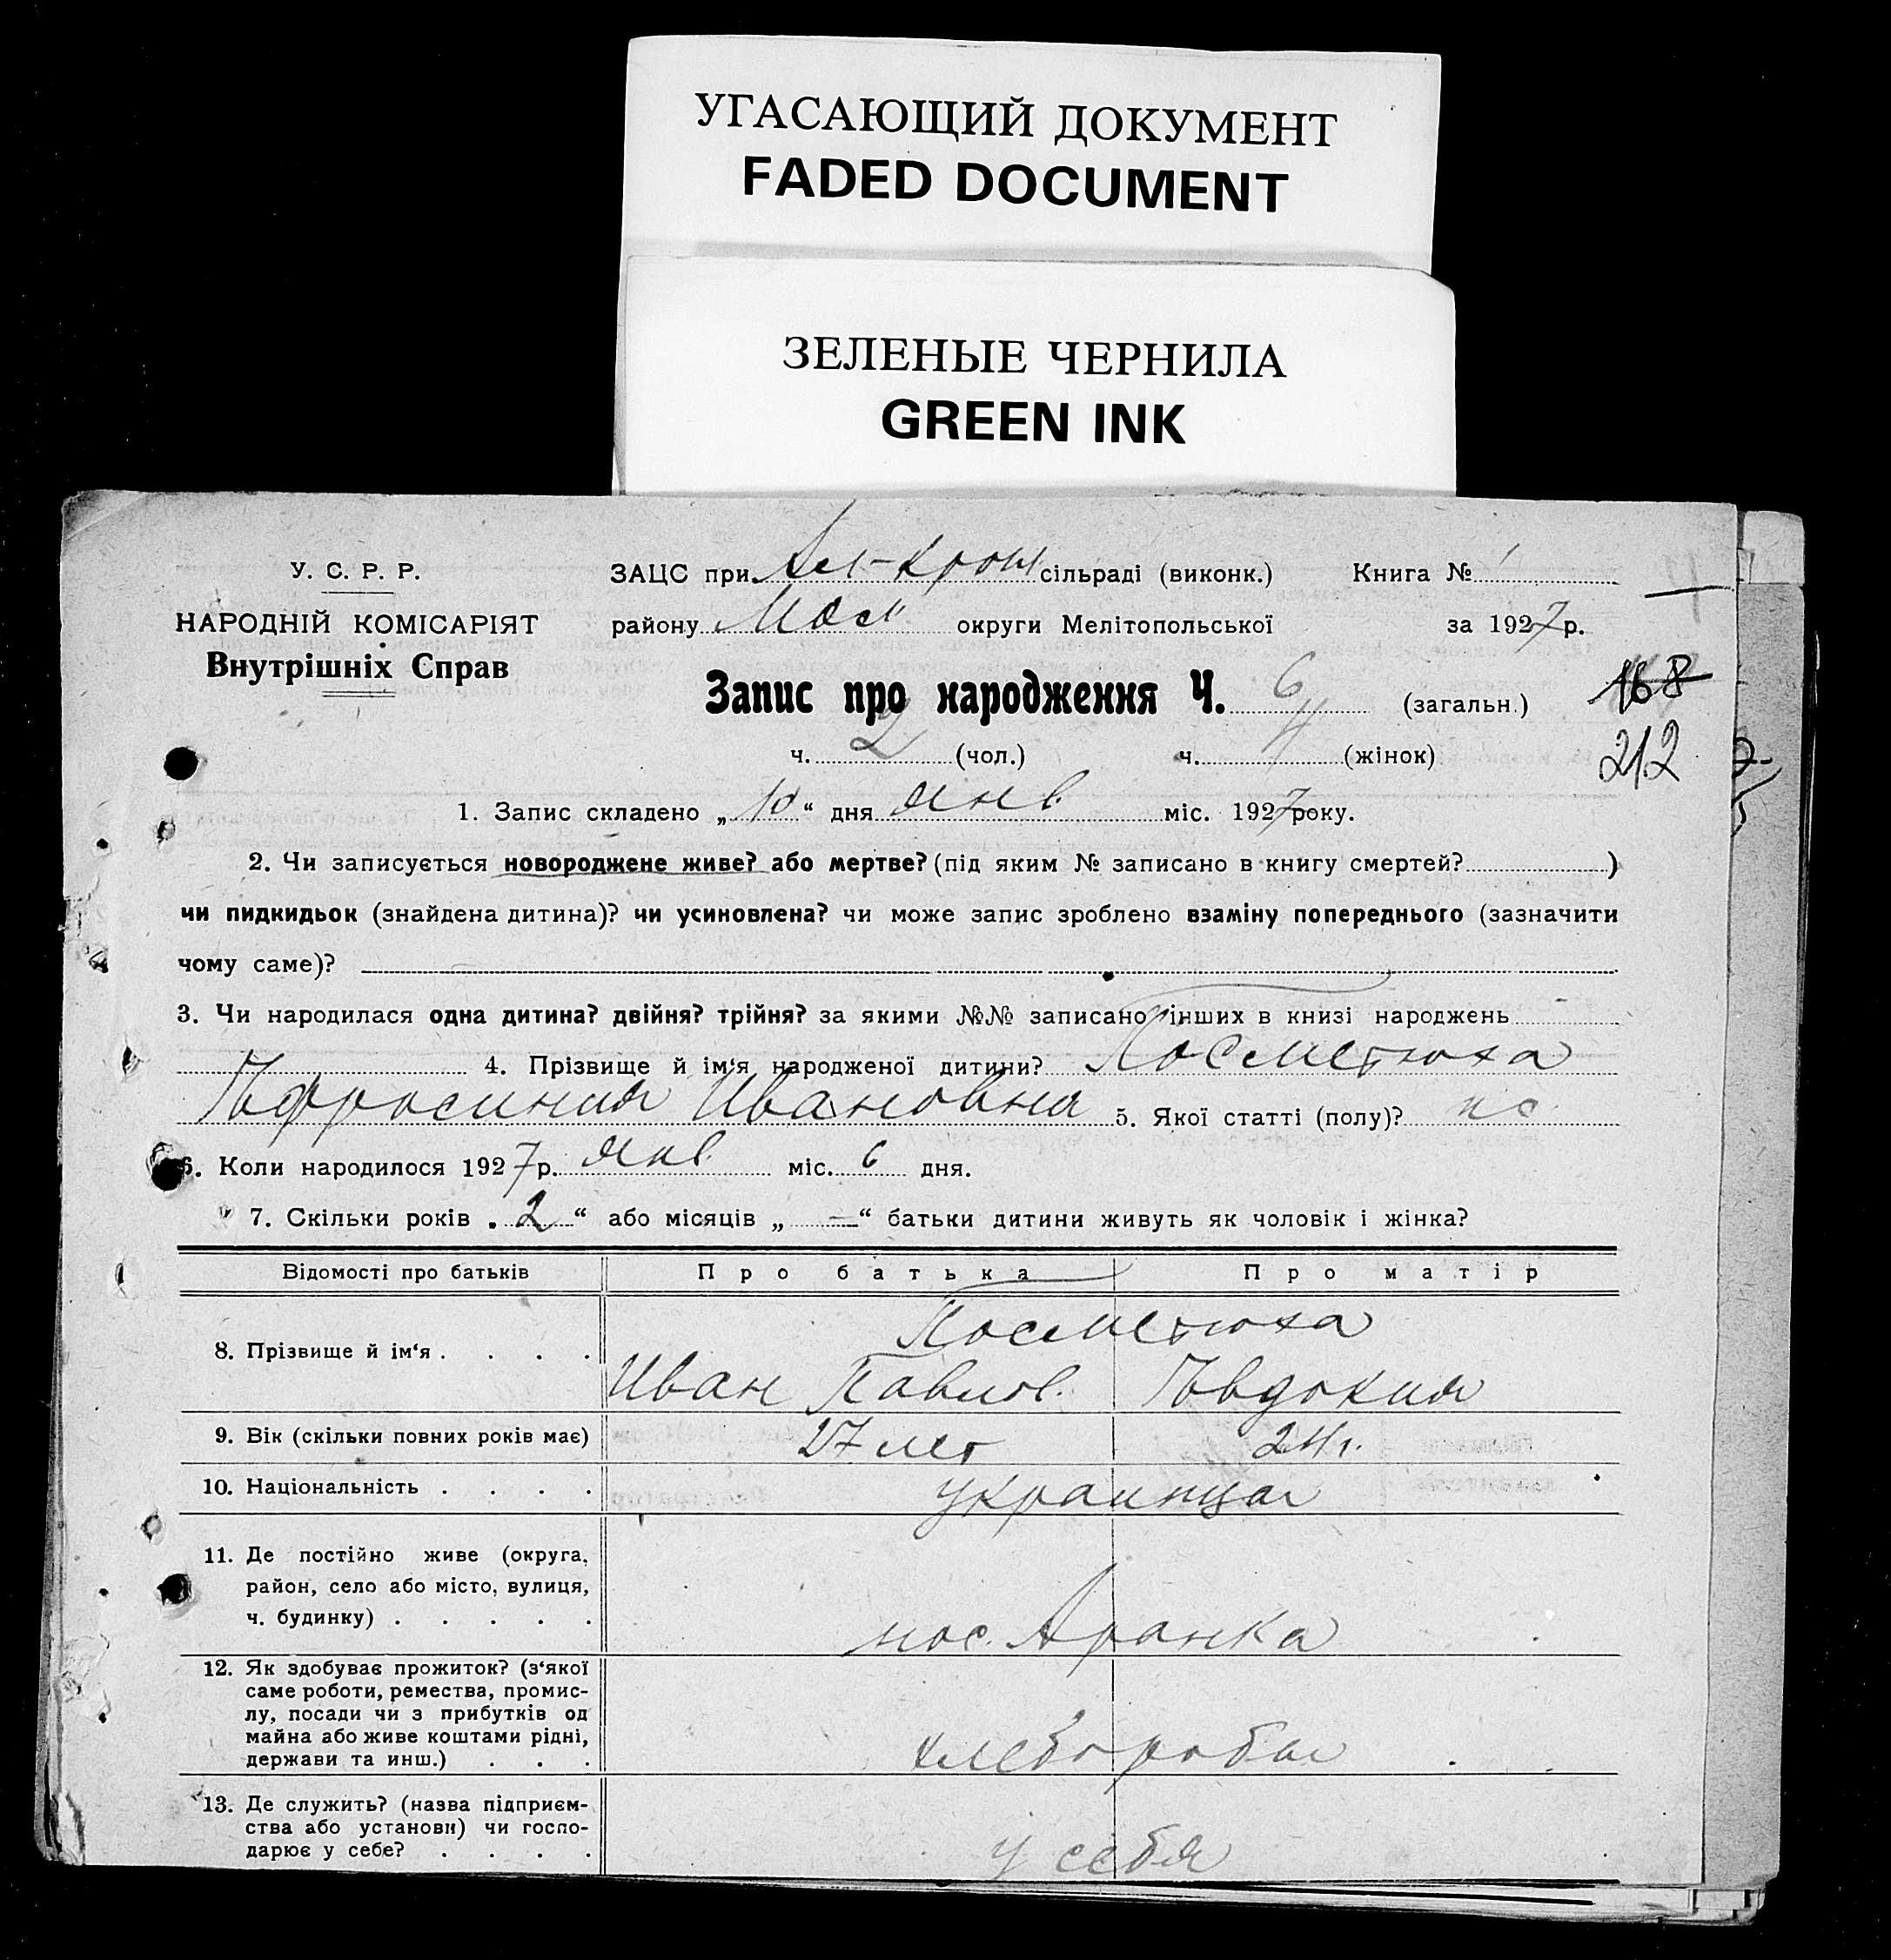 УГАСАЮЩИЙ ДОКУМЕНТ
FADED DOCUMENT
ЗЕЛЕНЫЕ ЧЕРНИЛА
GREEN INK
У. С. Р. Р.
НАРОДНІЙ КОМІСАРІЯТ
Внутрішніх Справ
ЗАЦС при сільраді (виконк.) Книга № 1
району округи Мелітопольської за 1927 р.
Запис про народження Ч. 6 (загальн.)
168
ч. 2 (чол.) ч. 4 (жінок)
212
1. Запис складено „10“ дня янв. міс. 1927 року.
2. Чи записується новороджене живе? або мертве? (під яким № записано в книгу смертей? )
чи пидкидьок (знайдена дитина)? чи усиновлена? чи може запис зроблено взаміну попереднього (зазначити
чому саме)?
3. Чи народилася одна дитина? двійня? трійня? за якими №№ записано інших в книзі народжень
4. Прізвище й ім'я народженої дитини? Посметюха
Ефросиния Ивановна 5. Якої статті (полу)?
6. Коли народилося 1927 р. янв. міс. 6 дня.
7. Скільки років „2“ або місяців „—“ батьки дитини живуть як чоловік і жінка?
Відомості про батьків Про батька Про матір
Посметюха
8. Прізвище й ім'я . . . .
Иван Павлов. Евдокия
9. Вік (скільки повних років має) 27 лет 24 г.
10. Національність . . . . украинцы
11. Де постійно живе (округа,
район, село або місто, вулиця,
ч. будинку) . . . . . пос. Аранка
12. Як здобуває прожиток? (з'якої
саме роботи, ремества, промис-
лу, посади чи з прибутків од
майна або живе коштами рідні, хлеборобы
держави та инш.) . . .
13. Де служить? (назва підприєм-
ства або установи) чи госпо-
дарює у себе? . . . . у себя